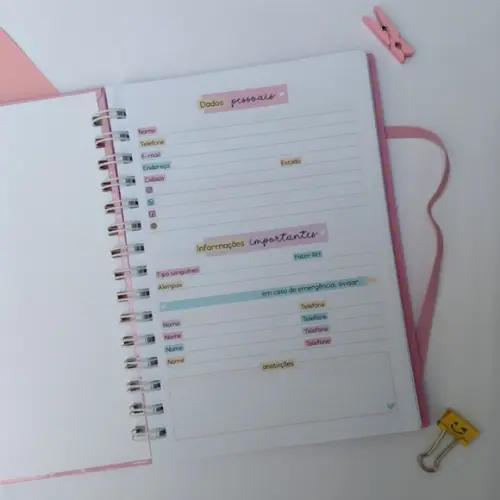 Dados pessoais
Nome
Telefone
E-mail
Endereço
Estado
Cidade
Informações importantes
Tipo sanguíneo
Fator RH
Alergias
em caso de emergência, avisar
Nome
Telefone
Nome
Telefone
Nome
Telefone
Nome
Telefone
anotações